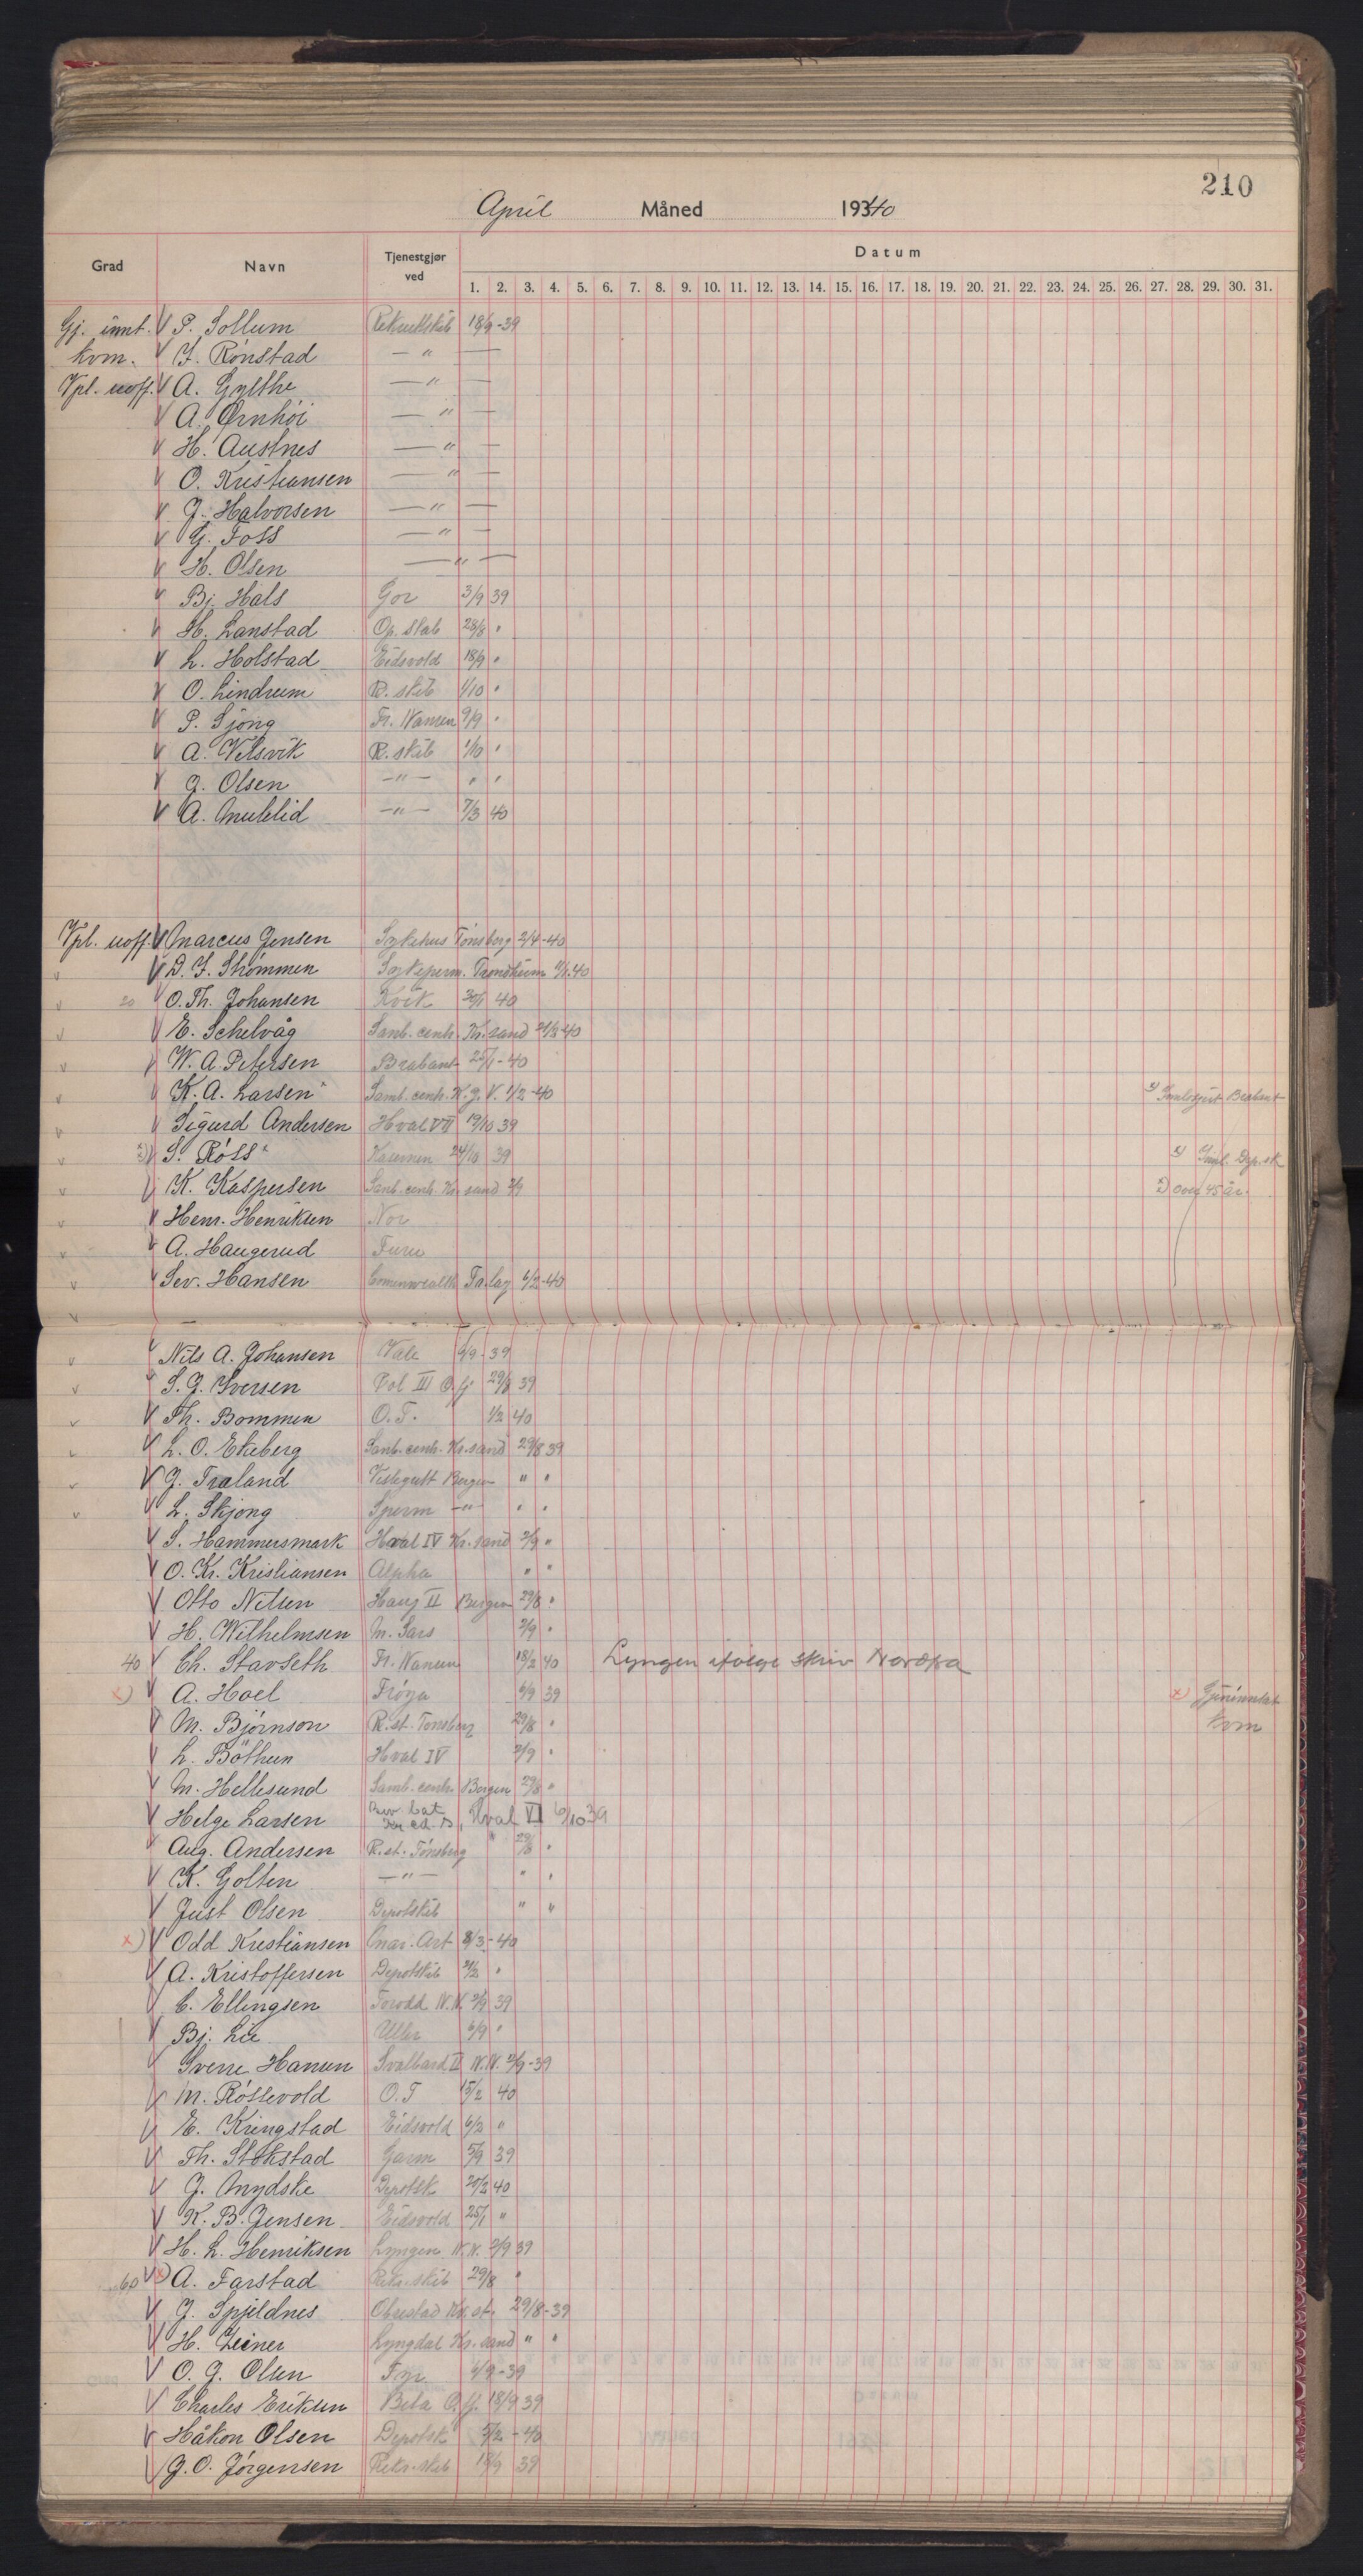 210
April Måned 19340
Grad Navn Tjenestgjør ved Datum
1. 2. 3. 4. 5. 6. 7. 8. 9. 10. 11. 12. 13. 14. 15. 16. 17. 18. 19. 20. 21. 22. 23. 24. 25. 26. 27. 28. 29. 30. 31.
Gj. innt. V P. Sollum Rekruttskib 18/9-39
kvm. V J. Rønstad — " —
Vpl. uoff. V A. Gylthe — " —
V A. Ørnhöi — " —
V H. Austnes — " —
V O. Kristiansen — " —
V J. Halvorsen — " —
V G. Foss — " —
V H. Olsen — " —
V Bj. Hals Gor 3/9 39
V H. Lanstad Op. stab 28/8 "
V L. Holstad Eidsvold 18/9 "
V O. Lindrum R. skib 1/10 "
V P. Sjong Fr. Nansen 9/9 "
V A. Velsvik R. skib 1/10 "
V J. Olsen — " — " "
V A. Muklid — " — 7/3 40
Vpl. uoff. V Marcus Jensen Sykehus Tønsberg 2/4-40
V D. J. Strømmen Sykeperm. Trondheim 40
20 V O. Th. Johansen Kvik 30/1 40
V E. Schelvåg Samb. centr. Kr. sand 40
V W. A. Petersen Brabant 25/1-40
V K. A. Larsen Samb. centr. K. J. V. 1/2-40 Brabant
V Sigurd Andersen Hval VII 19/10 39
V S. Röss 24/10 39 Dep.sk
V K. Kaspersen Samb. centr. Kr. sand 2/9 over 45 år.
V Henr. Henriksen Nor
V A. Haugerud Furu
V Sev. Hansen Commenwealth Fa.lag 6/2-40
V Nils A. Johansen Vale 6/9-39
V S. J. Iversen Pol III O.fj 29/8 39
V Th. Bommen O.T. 1/2 40
V L. O. Ekeberg Samb. centr. Kr.sand 29/8 39
V J. Træland Veslegutt Bergen " "
V L. Skjong Sperm — " — " "
V S. Hammersmark Hval IV Kr. sand 2/9 "
V O. Kr. Kristiansen Alpha " "
V Otto Nilsen Haug II Bergen 29/8 "
V H. Wilhelmsen M. Sars 2/9 "
40 V Ch. Stavseth Fr. Nansen 18/2 40 Lyngen ifølge skriv
x) V A. Hoel Frøya 6/9 39 x)
V M. Bjørnson R. st. Tønsberg 29/8 " kvm
V L. Böthun Hval IV 2/9 "
V M. Hellesund Samb. centr. Bergen 29/8 "
V Helge Larsen Hval VI 6/10 39
V Aug. Andersen R. st. Tønsberg 29/8 "
V K. Golten — " — " "
V Just Olsen Depotskib " "
x) V Odd Kristiansen Mar. Art 8/3-40
V A. Kristoffersen Depotskib "
V C. Ellingsen Torodd N.N. 2/9 39
V Bj. Lie Uller 6/9 "
V Sverre Hansen Svalbard II N.N. 2/9-39
V M. Røssevold O.T 15/2 40
V E. Kringstad Eidsvold 6/2 "
V Th. Stokstad Garm 5/9 39
V J. Mydske Depotsk 20/2 40
V K. B. Jensen Eidsvold 25/1 "
V H. L. Henriksen Lyngen N.N. 2/9 39
60 V x) A. Farstad Rekr.skib 29/8 "
V J. Spjeldnes Obrestad Kr. st. 29/8-39
V H. Zeiner Lyngdal Kr. sand " "
V O. J. Olsen Tyr 6/9-39
V Charles Eriksen Beta O.fj. 18/9 39
V Håkon Olsen Depotsk 5/2-40
V J. O. Jörgensen Rekr. skib 18/9 39